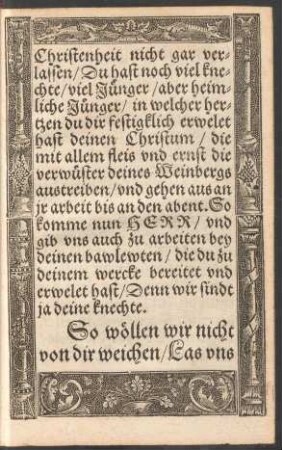 Christenheit nicht gar ver-
lassen/ Du hast noch viel kne-
chte/ viel Jünger/ aber heim-
liche Jünger/ in welcher her-
tzen du dir festigklich erwelet
hast deinen Christum/ die
mit allem fleis vnd ernst die
verwüster deines Weinbergs
austreiben/ vnd gehen aus an
jr arbeit bis an den abent. So
komme nun HERR/ vnd
gib vns auch zu arbeiten bey
deinen bawlewten/ die du zu
deinem wercke bereitet vnd
erwelet hast/ Denn wir sindt
ja deine knechte.
So wöllen wir nicht
von dir weichen/ Las vns